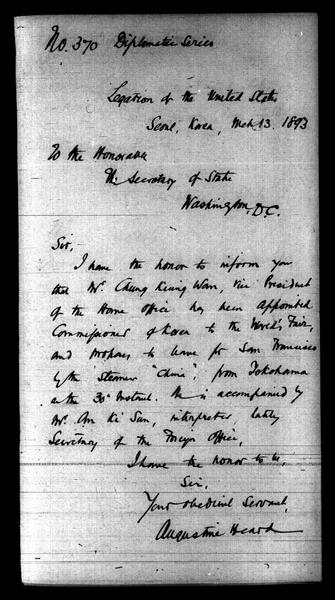 No. 370 Diplomatic Series
Legation of the United States
Seoul, Korea, Mch 13. 1893
To the Honorable
The Secretary of State
Washington, D.C.
Sir,
I have the honor to inform you
that Mr. Chung Keung Wan, Vice President
of the Home Office has been appointed
Commissioner of Korea to the World's Fair,
and proposes to leave for San Francisco
by the Steamer "China", from Yokohama
on the 30th Instant. He is accompanied by
Mr. An Ki Sun, interpreter, lately
Secretary of the Foreign Office,
I have the honor to be,
Sir,
Your obedient Servant,
Augustine Heard